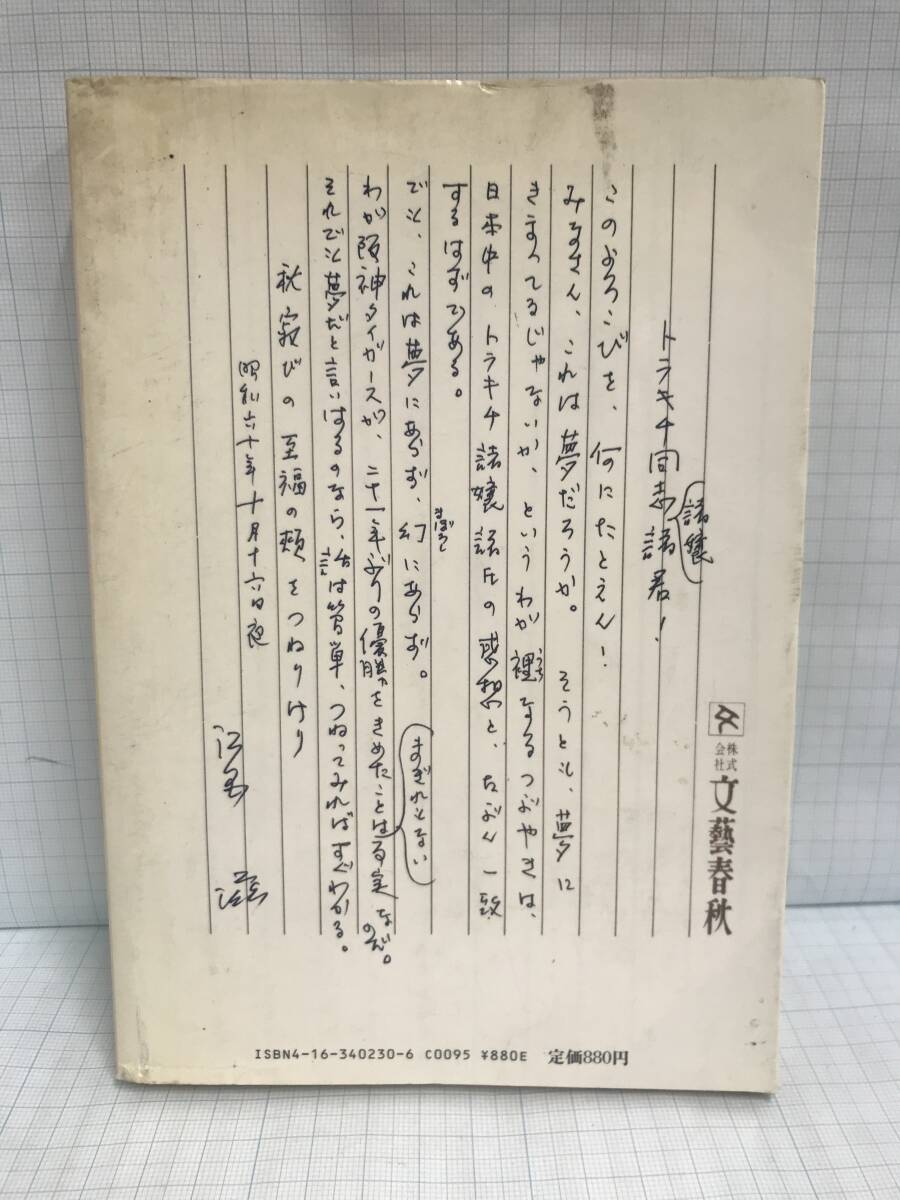 トラキチ同志諸嬢諸君!
このよろこびを、何にたとえん!
みなさん、これは夢だろうか。そうとも、夢に
きまってるじゃないか、というわが裡なるつぶやきは、
日本中のトラキチ諸嬢諸氏の感想と、たぶん一致
するはずである。
でも、これは夢にあらず、幻にあらず。
まぼろし
わが阪神タイガースが、二十一年ぶりの優勝をきめたことはまぎれもない事実なのだ。
それでも夢だと言いはるのなら、話は簡単、つねってみればすぐわかる。
秋寂びの至福の頰をつねりけり
昭和六十年十月十六日夜
江國 滋
株式会社 文藝春秋
ISBN4-16-340230-6 C0095 ¥880E 定価880円